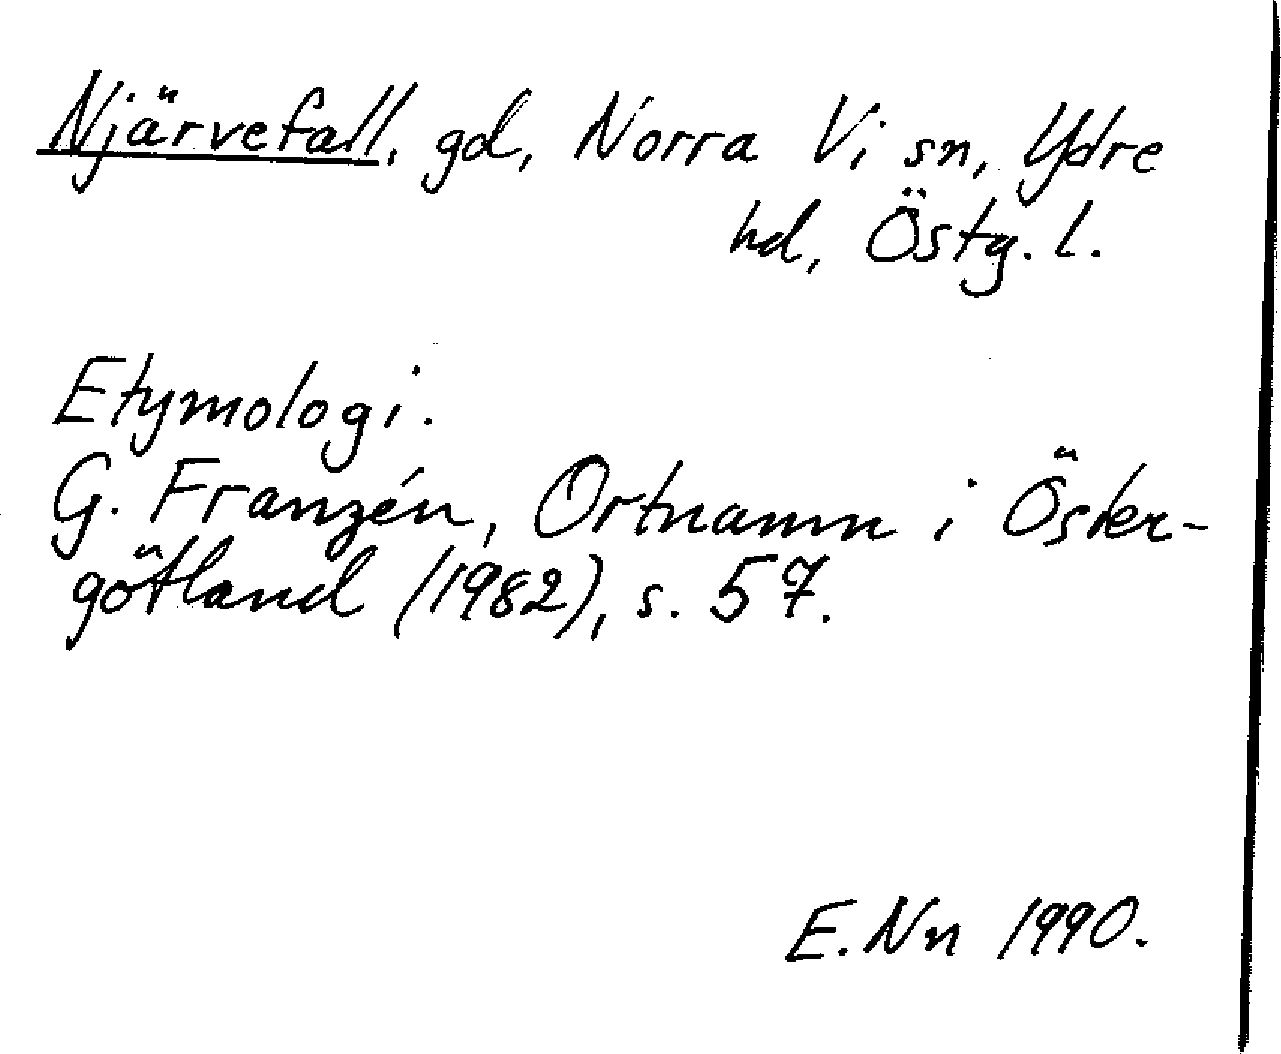 Njärvefall, gd, Norra Vi sn, Ydre
hd, Östg. l.
Etymologi.
G. Franzén, Ortnamn i Öster-
götland (1982), s. 57.
E. Nn 1990.